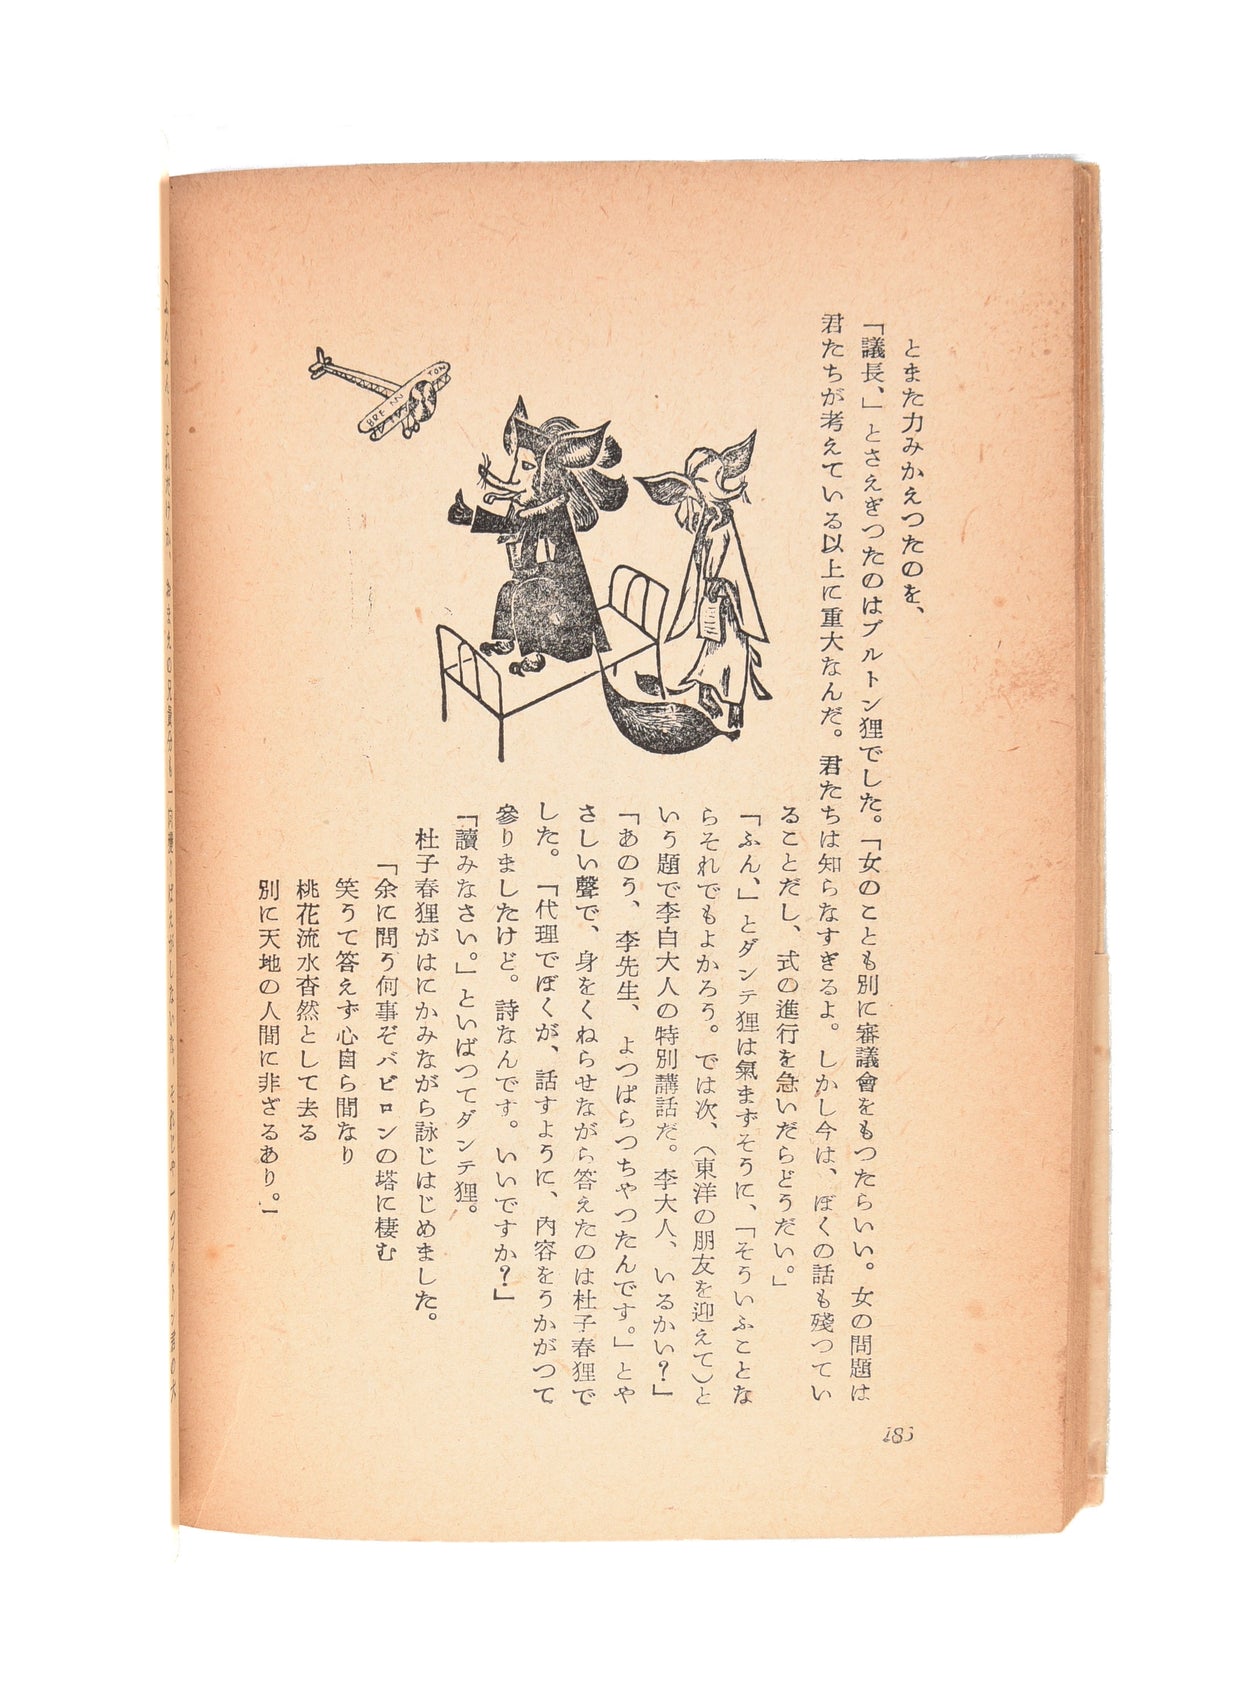 とまた力みかえつたのを、
「議長、」とさえぎつたのはブルトン狸でした。「女のことも別に審議會をもつたらいい。女の問題は
君たちが考えている以上に重大なんだ。君たちは知らなすぎるよ。しかし今は、ぼくの話も殘つてい
ることだし、式の進行を急いだらどうだい。」
「ふん、」とダンテ狸は氣まずそうに、「そういふことな
らそれでもよかろう。では次、（東洋の朋友を迎えて）と
いう題で李白大人の特別講話だ。李大人、いるかい？」
「あのう、李先生、よつぱらつちやつたんです。」とや
さしい聲で、身をくねらせながら答えたのは杜子春狸で
した。「代理でぼくが、話すように、內容をうかがつて
參りましたけど。詩なんです。いいですか？」
「讀みなさい。」といばつてダンテ狸。
杜子春狸がはにかみながら詠じはじめました。
「余に問う何事ぞバビロンの塔に棲む
笑うて答えず心自ら間なり
桃花流水杳然として去る
別に天地の人間に非ざるあり。」